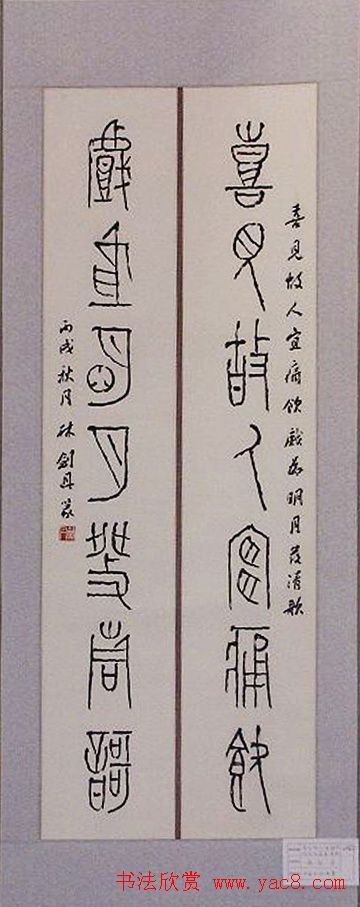 喜見故人宜痛飲戲為明月發清歌
喜見故人宜痛飲
戲為明月發清歌
丙戌秋月林劍丹篆
书法欣赏 www.yac8.com